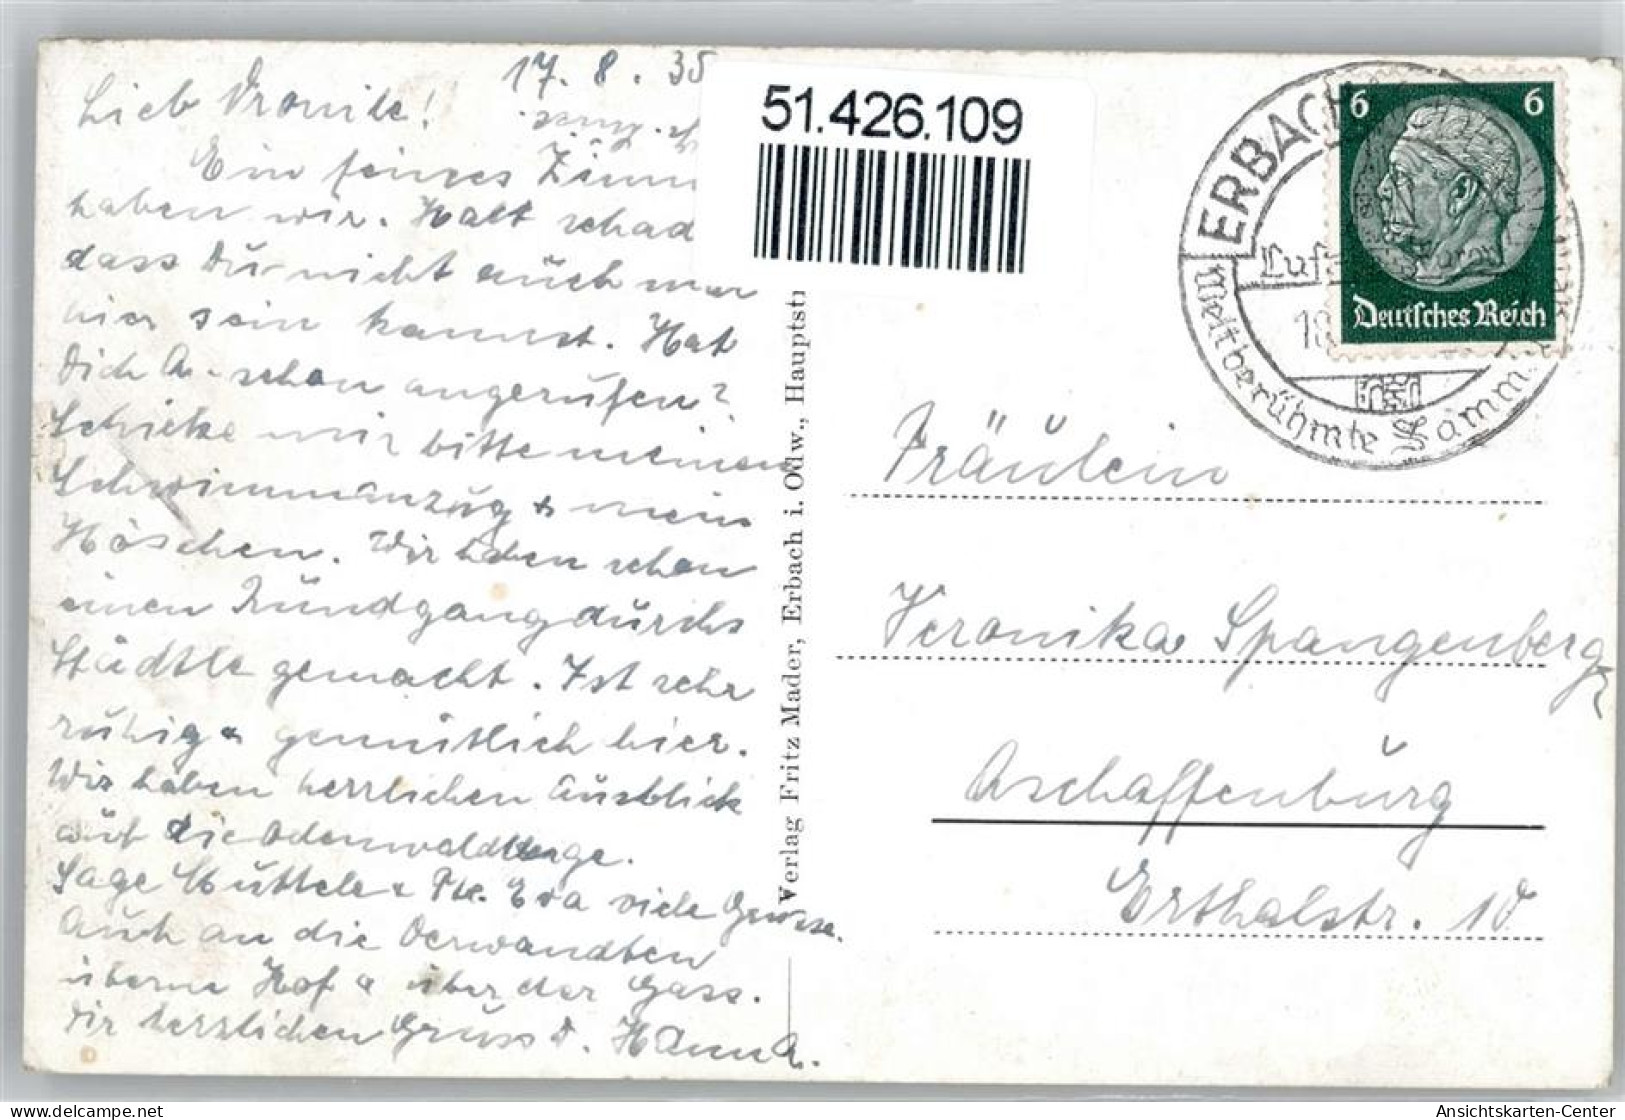 17. 8. 35
Lieb Vronile!
Ein feines Zimm
haben wir. Halt schad
dass Du nicht auch mer
hier sein kannst. Hat
Dich A. schon angerufen?
Schicke mir bitte meinen
Schwimmanzug & mein
Höschen. Wir haben schon
einen Rundgang durchs
Städtle gemacht. Ist sehr
ruhig & gemütlich hier.
Wir haben herrlichen Ausblick
auf die Odenwaldberge.
Sage Muttele & Eva viele Grüsse.
Auch an die Verwandten
überm Hof & über der Gass.
Dir herzlichen Gruss D. Hanna.
51.426.109
Verlag Fritz Mader, Erbach i. Odw., Hauptstr
ERBACH
Luf
18
Weltberühmte
6 6
Deutsches Reich
Fräulein
Veronika Spangenberg
Aschaffenburg
Erthalstr. 10
www.oldthing.de
Ansichtskarten-Center